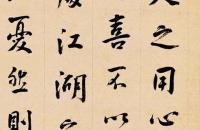 之用心
喜不以
江湖
憂然則